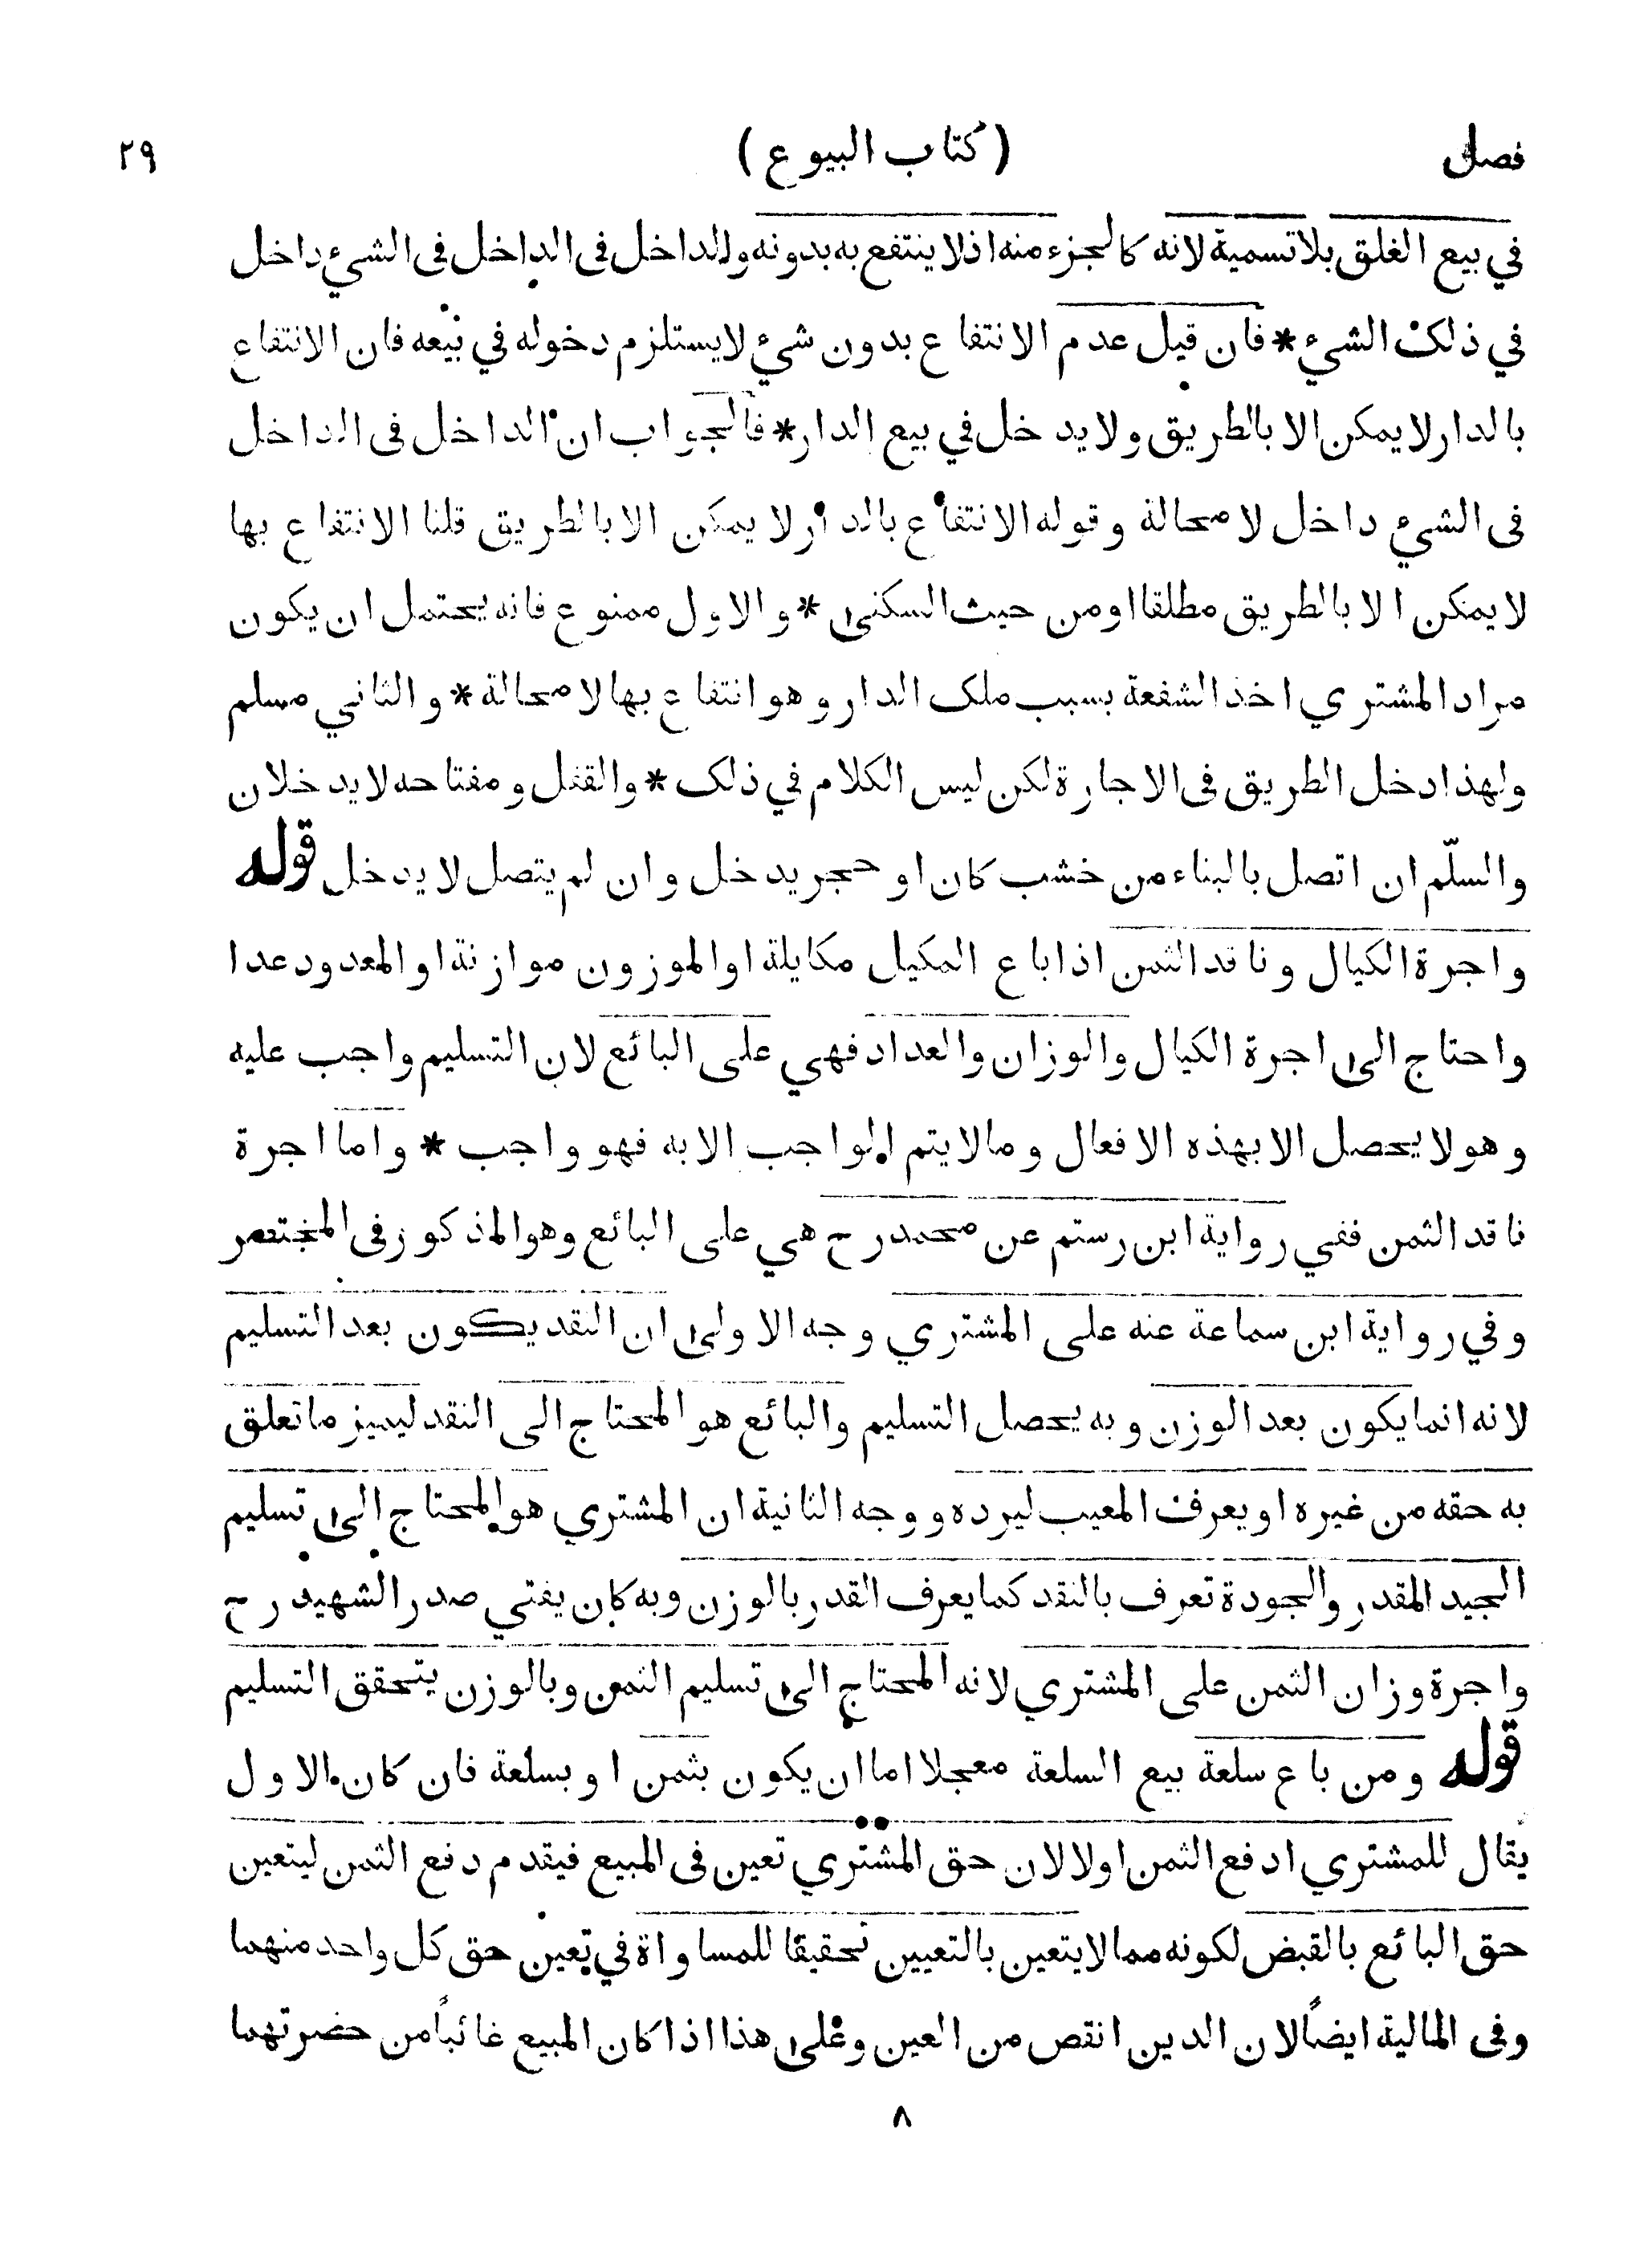 فصل (كتاب البيوع) ٢٩
في بيع الغلق بلا تسمية لانه كالجزء منه اذ لا ينتفع به بدونه والداخل فى الداخل فى الشيء داخل
في ذلك الشيء * فان قيل عدم الانتفاع بدون شيء لا يستلزم دخوله في بيعه فان الانتفاع
بالدار لا يمكن الا بالطريق ولا يدخل في بيع الدار * فالجواب ان الداخل فى الداخل
فى الشيء داخل لا محالة وقوله الانتفاع بالدار لا يمكن الا بالطريق قلنا الانتفاع بها
لا يمكن الا بالطريق مطلقا او من حيث السكنى * والاول ممنوع فانه يحتمل ان يكون
مراد المشتري اخذ الشفعة بسبب ملك الدار وهو انتفاع بها لا محالة * والثاني مسلم
ولهذا دخل الطريق فى الاجارة لكن ليس الكلام في ذلك * والقفل ومفتاحه لا يدخلان
والسلّم ان اتصل بالبناء من خشب كان او حجر يدخل وان لم يتصل لا يدخل قوله
واجرة الكيال وناقد الثمن اذا باع المكيل مكايلة او الموزون موازنة او المعدود عدا
واحتاج الى اجرة الكيال والوزان والعداد فهي على البائع لان التسليم واجب عليه
وهو لا يحصل الا بهذه الافعال ومالا يتم الواجب الا به فهو واجب * واما اجرة
ناقد الثمن ففي رواية ابن رستم عن محمد رح هي على البائع وهو المذكور فى المختصر
وفي رواية ابن سماعة عنه على المشتري وجه الاولى ان النقد يكون بعد التسليم
لانه انما يكون بعد الوزن وبه يحصل التسليم والبائع هو المحتاج الى النقد ليميز ما تعلق
به حقه من غيره او يعرف المعيب ليرده ووجه الثانية ان المشتري هو المحتاج الى تسليم
الجيد المقدر والجودة تعرف بالنقد كما يعرف القدر بالوزن وبه كان يفتي صدر الشهيد رح
واجرة وزان الثمن على المشتري لانه المحتاج الى تسليم الثمن وبالوزن يتحقق التسليم
قوله ومن باع سلعة بيع السلعة معجلا اما ان يكون بثمن او بسلعة فان كان الاول
يقال للمشتري ادفع الثمن اولا لان حق المشتري تعين فى المبيع فيقدم دفع الثمن ليتعين
حق البائع بالقبض لكونه مما لا يتعين بالتعيين تحقيقا للمساواة في تعين حق كل واحد منهما
وفى المالية ايضاً لان الدين انقص من العين وعلى هذا اذا كان المبيع غائباً من حضرتهما
٨